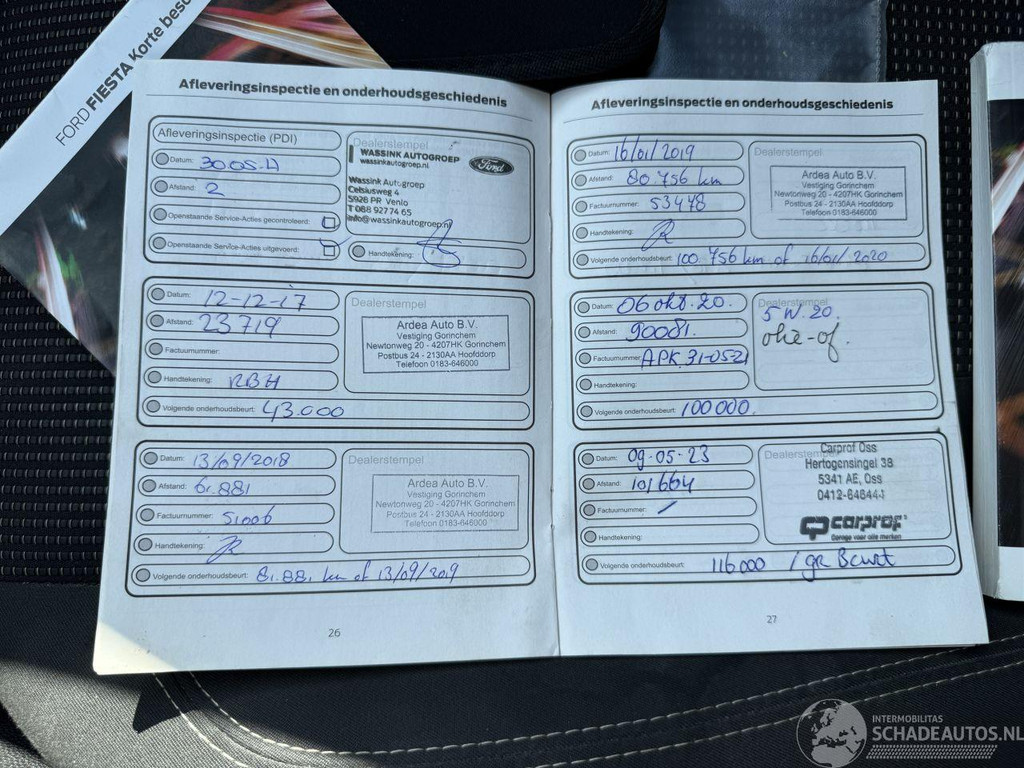 FORD FIESTA Korte besc
Afleveringsinspectie en onderhoudsgeschiedenis
Afleveringsinspectie (PDI)
Datum:
Afstand: 2
Openstaande Service-Acties gecontroleerd:
Openstaande Service-Acties uitgevoerd:
Dealerstempel
WASSINK AUTOGROEP
wassinkautogroep.nl
Ford
Wassink Autogroep
Celsiusweg 4
5928 PR Venlo
T 088 927 74 65
info@wassinkautogroep.nl
Handtekening:
Datum: 12-12-17
Afstand: 23719
Factuurnummer:
Handtekening: RBH
Volgende onderhoudsbeurt: 43.000
Dealerstempel
Ardea Auto B.V.
Vestiging Gorinchem
Newtonweg 20 - 4207HK Gorinchem
Postbus 24 - 2130AA Hoofddorp
Telefoon 0183-646000
Datum: 13/09/2018
Afstand: 61.881
Factuurnummer: 51006
Handtekening:
Volgende onderhoudsbeurt: 81.881 km of 13/09/2019
Dealerstempel
Ardea Auto B.V.
Vestiging Gorinchem
Newtonweg 20 - 4207HK Gorinchem
Postbus 24 - 2130AA Hoofddorp
Telefoon 0183-646000
26
Afleveringsinspectie en onderhoudsgeschiedenis
Datum: 16/01/2019
Afstand: 80.756 km
Factuurnummer: 53478
Handtekening:
Volgende onderhoudsbeurt: 100.756 km of 16/01/2020
Dealerstempel
Ardea Auto B.V.
Vestiging Gorinchem
Newtonweg 20 - 4207HK Gorinchem
Postbus 24 - 2130AA Hoofddorp
Telefoon 0183-646000
Datum: 06 okt. 20.
Afstand: 90081.
Factuurnummer: APK 31-05-21
Handtekening:
Volgende onderhoudsbeurt: 100000.
Dealerstempel
5W.20.
olie-of.
Datum: 09-05-23
Afstand: 101664
Factuurnummer:
Handtekening:
Volgende onderhoudsbeurt: 116000 / gr Beurt
Dealerstempel
Carprof Oss
Hertogensingel 38
5341 AE, Oss
carprof
Garage voor alle merken
27
INTERMOBILITAS
SCHADEAUTOS.NL